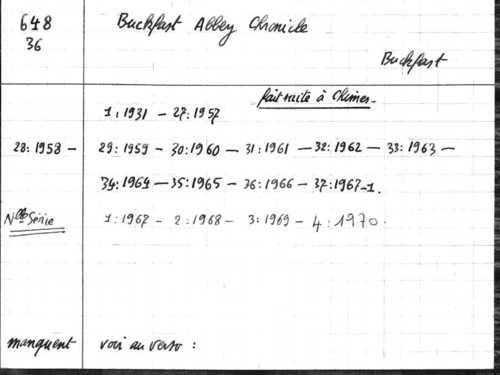 648 Buckfast Abbey Chronicle
36
Buckfast
fait suite à Chimes.
1:1931 - 27:1957
28:1958 - 29:1959 - 30:1960 - 31:1961 - 32:1962 - 33:1963 -
34:1964 - 35:1965 - 36:1966 - 37:1967-1.
Nlle Série 1:1967 - 2:1968 - 3:1969 - 4:1970.
manquent voir au verso :